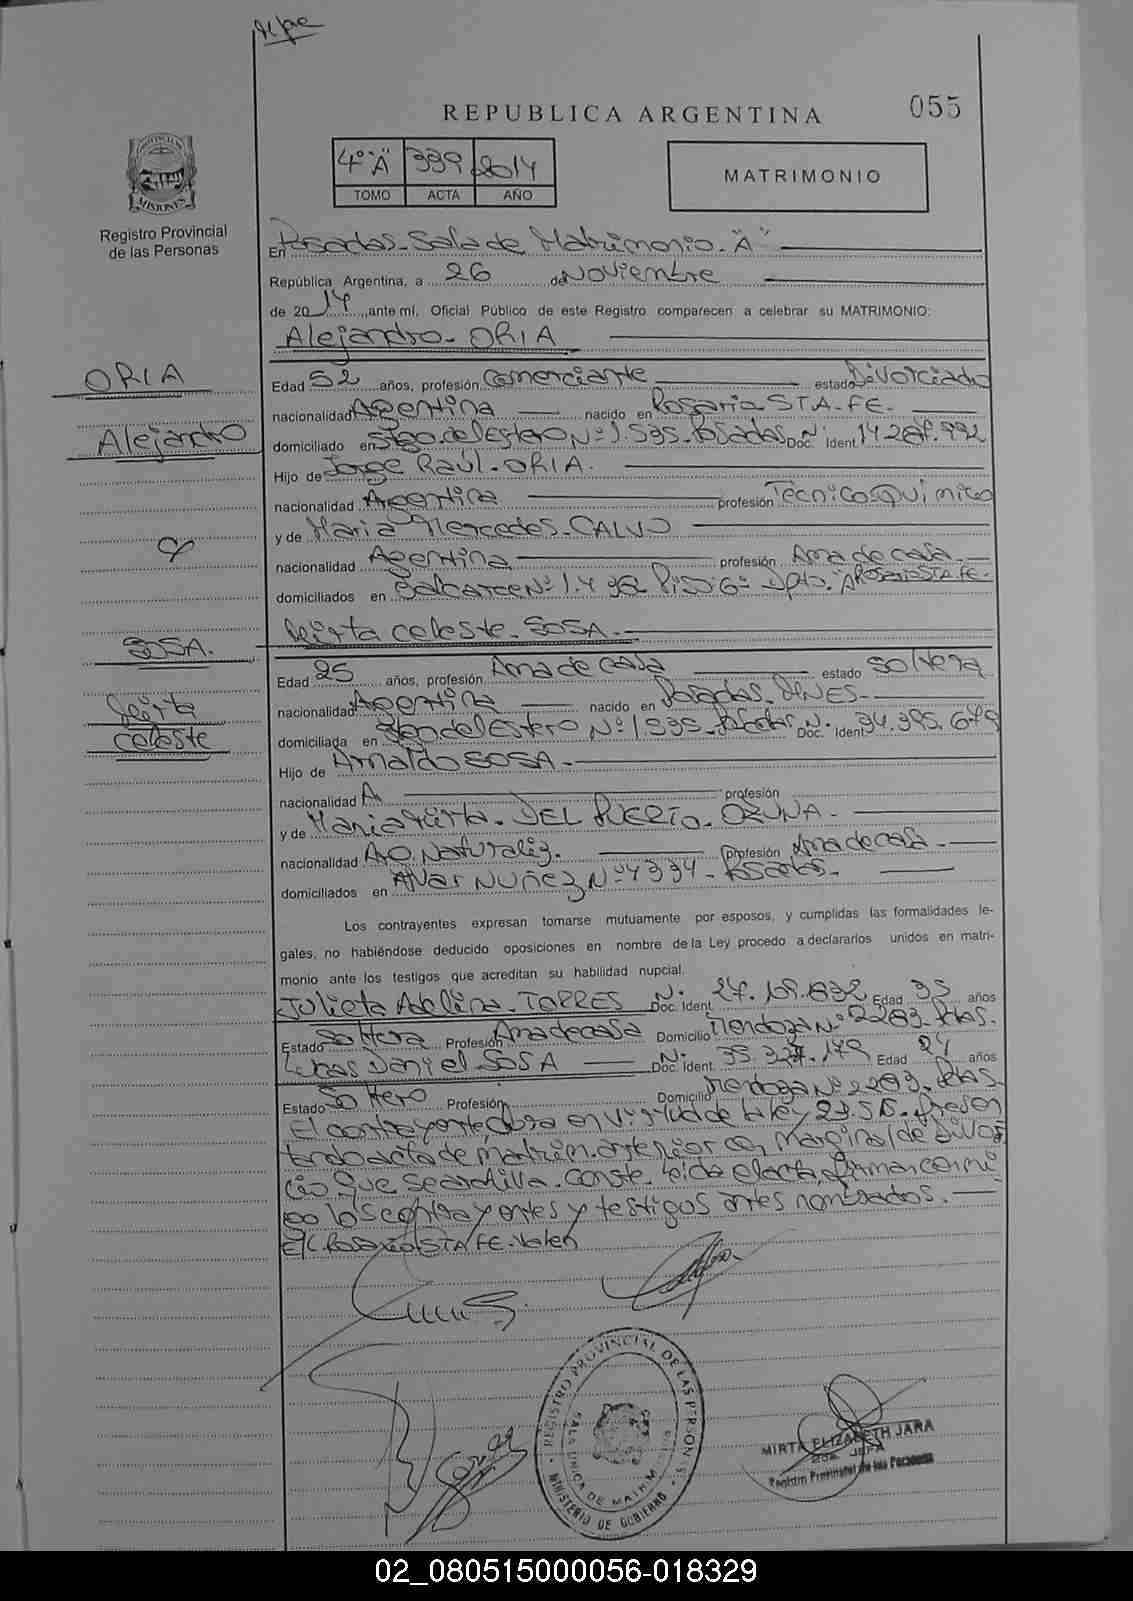 REPUBLICA ARGENTINA
055
4º "A" 399 2014
TOMO ACTA AÑO
MATRIMONIO
PROVINCIA DE MISIONES
Registro Provincial
de las Personas
En Posadas-Sala de Matrimonio-"A"
República Argentina, a 26 de Noviembre
de 2014, ante mí, Oficial Público de este Registro comparecen a celebrar su MATRIMONIO:
Alejandro-ORIA
ORIA
Alejandro
Edad 52 años, profesión Comerciante estado Divorciado
nacionalidad Argentina nacido en Rosario STA-FE.
domiciliado en Stgo del Estero Nº 1.535-Posadas Doc. Ident. Nº
Hijo de Jorge Raúl-ORIA.
nacionalidad Argentina profesión Tecnico Quimico
y de Maria Mercedes-CALVO
nacionalidad Agentina profesión Ama de casa
domiciliados en Balcarce Nº Piso 6º Dpto. A Rosario STA FE.
Mirta celeste-SOSA.
y
SOSA.
Mirta
celeste
Edad 25 años, profesión Ama de casa estado soltera
nacionalidad Argentina nacido en Posadas. MNES-
domiciliada en Stgo del Estero Nº 1.535-Posadas Doc. Ident. Nº 34.395.679
Hijo de Arnaldo SOSA-
nacionalidad A profesión
y de Maria Mirta-DEL PUERTO-OZUNA-
nacionalidad Naturaliz. profesión Ama de casa-
domiciliados en Alvar NUÑez Nº 4334-Posadas-
Los contrayentes expresan tomarse mutuamente por esposos, y cumplidas las formalidades le-
gales, no habiéndose deducido oposiciones en nombre de la Ley procedo a declararlos unidos en matri-
monio ante los testigos que acreditan su habilidad nupcial.
Julieta Adelina-TORRES Doc. Ident. Nº 27.109.832 Edad 35 años
Estado Soltera Profesión Ama de casa Domicilio Mendoza Nº 2283-Pdas.
Lucas Daniel-SOSA Doc. Ident. Nº 35.327.179 Edad 24 años
Estado Soltero Profesión Domicilio Mendoza Nº 2283-Pdas-
El contrayente en virtud de la ley presen
tando acta de matrim. anterior con marginal de divor
cio que se archiva. conste-leida el acta, firman conmi
go los contrayentes y testigos antes nombrados.
E/L Rosario STA FE-Valen
REGISTRO PROVINCIAL DE LAS PERSONAS
SALA UNICA DE MATRIM
MINISTERIO DE GOBIERNO
MIRTA ELIZABETH JARA
JEFA
Registro Provincial de las Personas
02_080515000056-018329